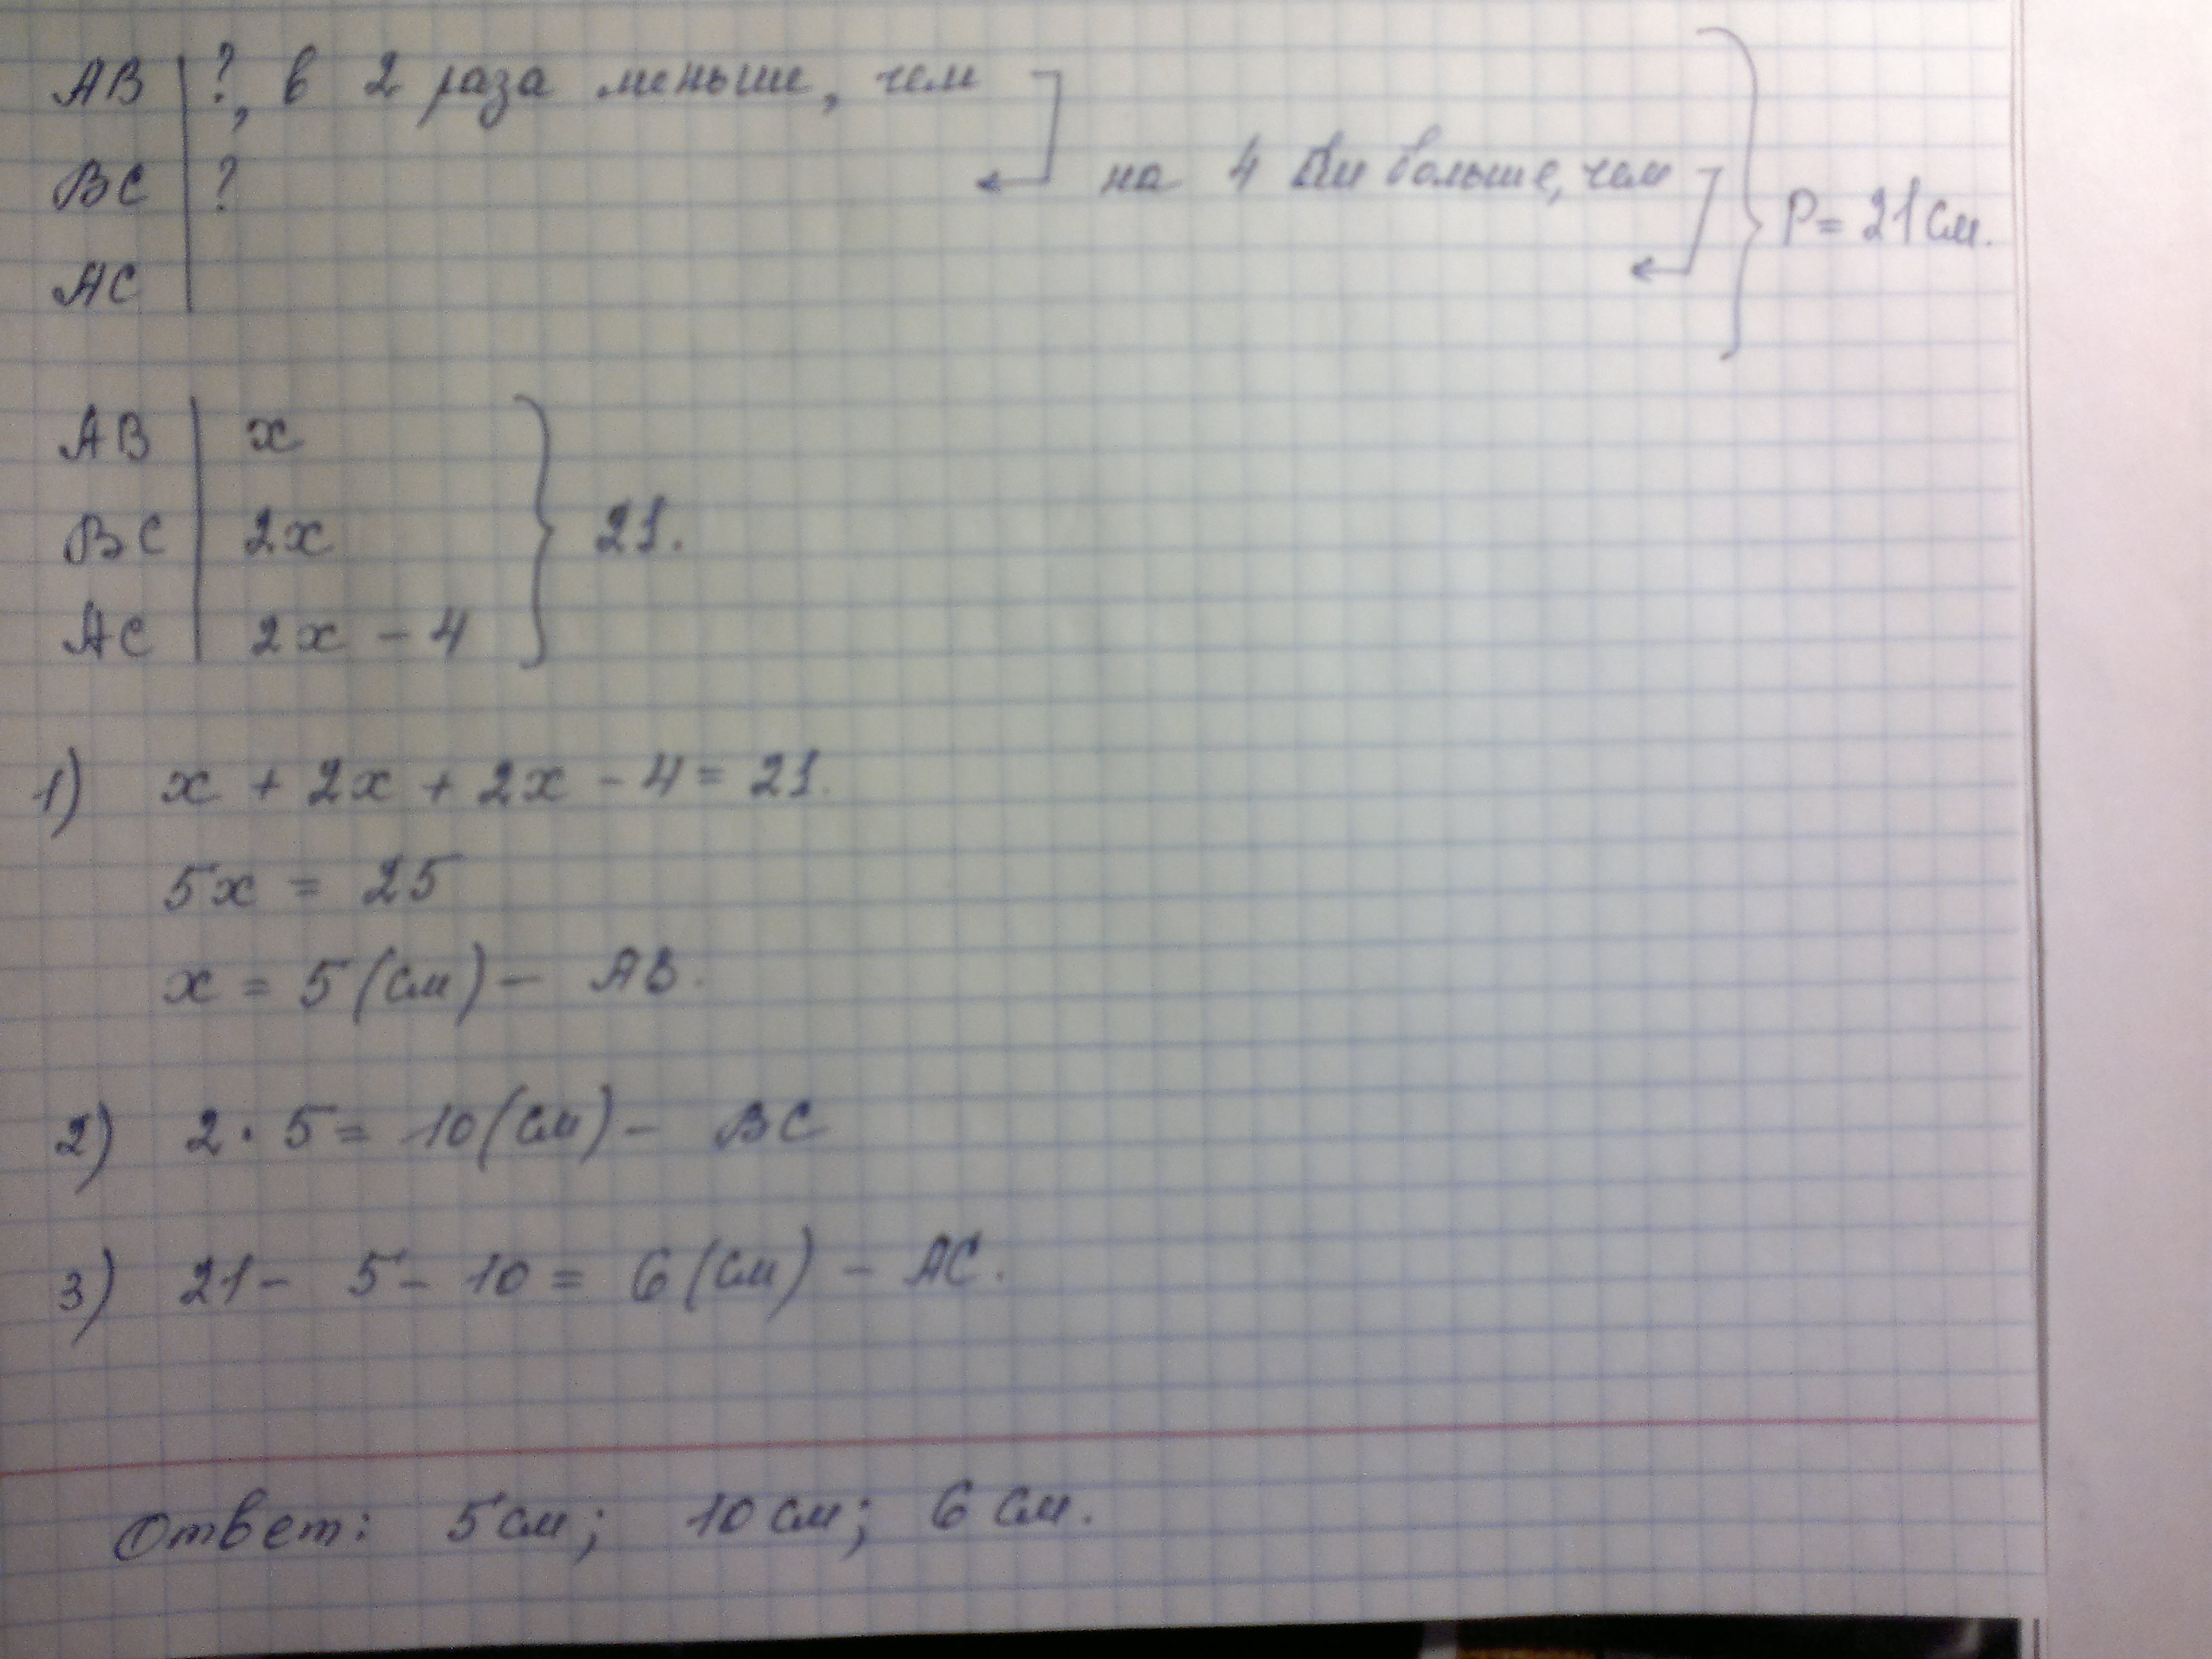 АВ ?, в 2 раза меньше, чем
ВС ? на 4 см больше, чем
АС
P = 21 см.
АВ x
ВС 2x
АС 2x - 4
21.
1) x + 2x + 2x - 4 = 21.
5x = 25
x = 5 (см) - АВ.
2) 2 · 5 = 10 (см) - ВС
3) 21 - 5 - 10 = 6 (см) - АС.
Ответ: 5 см; 10 см; 6 см.